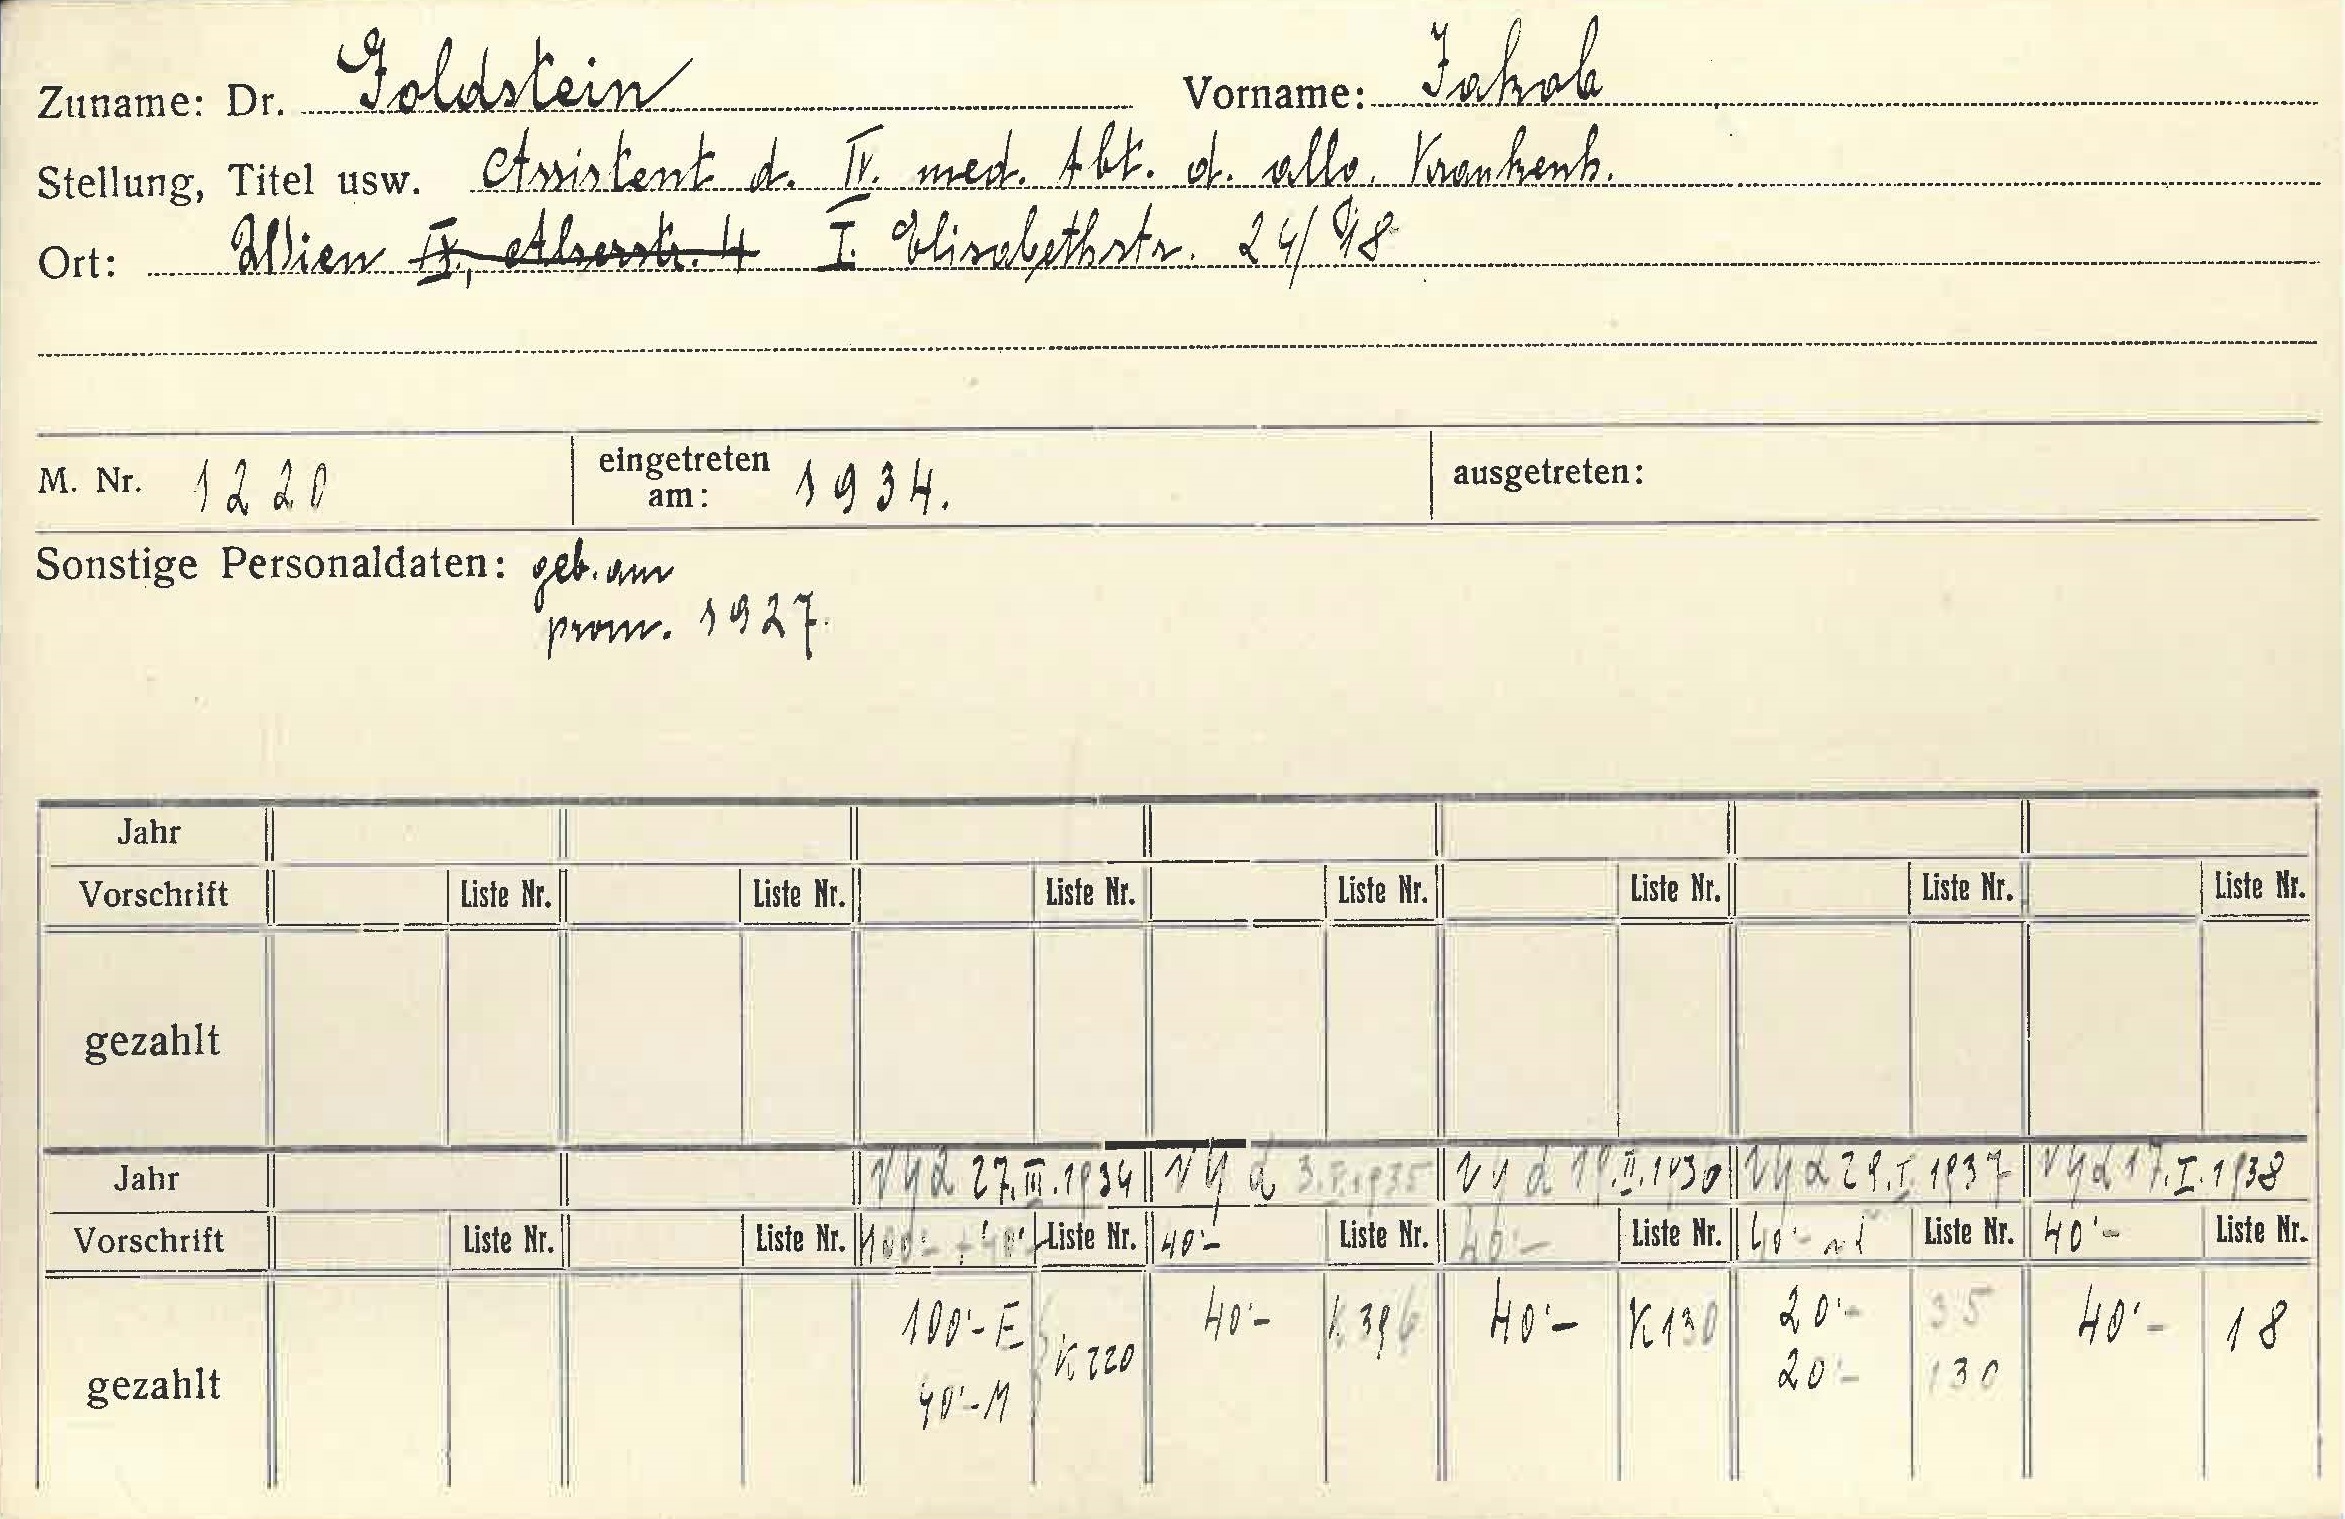 Zuname: Dr. Goldstein Vorname: Jakob
Stellung, Titel usw. Assistent d. IV. med. Abt. d. allg. Krankenh.
Ort: Wien IX., Alserstr. 4 I. Elisabethstr. 24/18
M. Nr. 1220 eingetreten am: 1934. ausgetreten:
Sonstige Personaldaten: geb. am
prom. 1927.
Jahr
Vorschrift Liste Nr. Liste Nr. Liste Nr. Liste Nr. Liste Nr. Liste Nr. Liste Nr.
gezahlt
Jahr 27.III.1934 1935 1937 17.I.1938
Vorschrift Liste Nr. Liste Nr. 100'- + 40'- Liste Nr. 40'- Liste Nr. 40'- Liste Nr. 40'- Liste Nr. 40'- Liste Nr.
gezahlt 100'- E 40'- K 396 40'- K 130 20'- 35 40'- 18
40'- M K 220 20'- 130